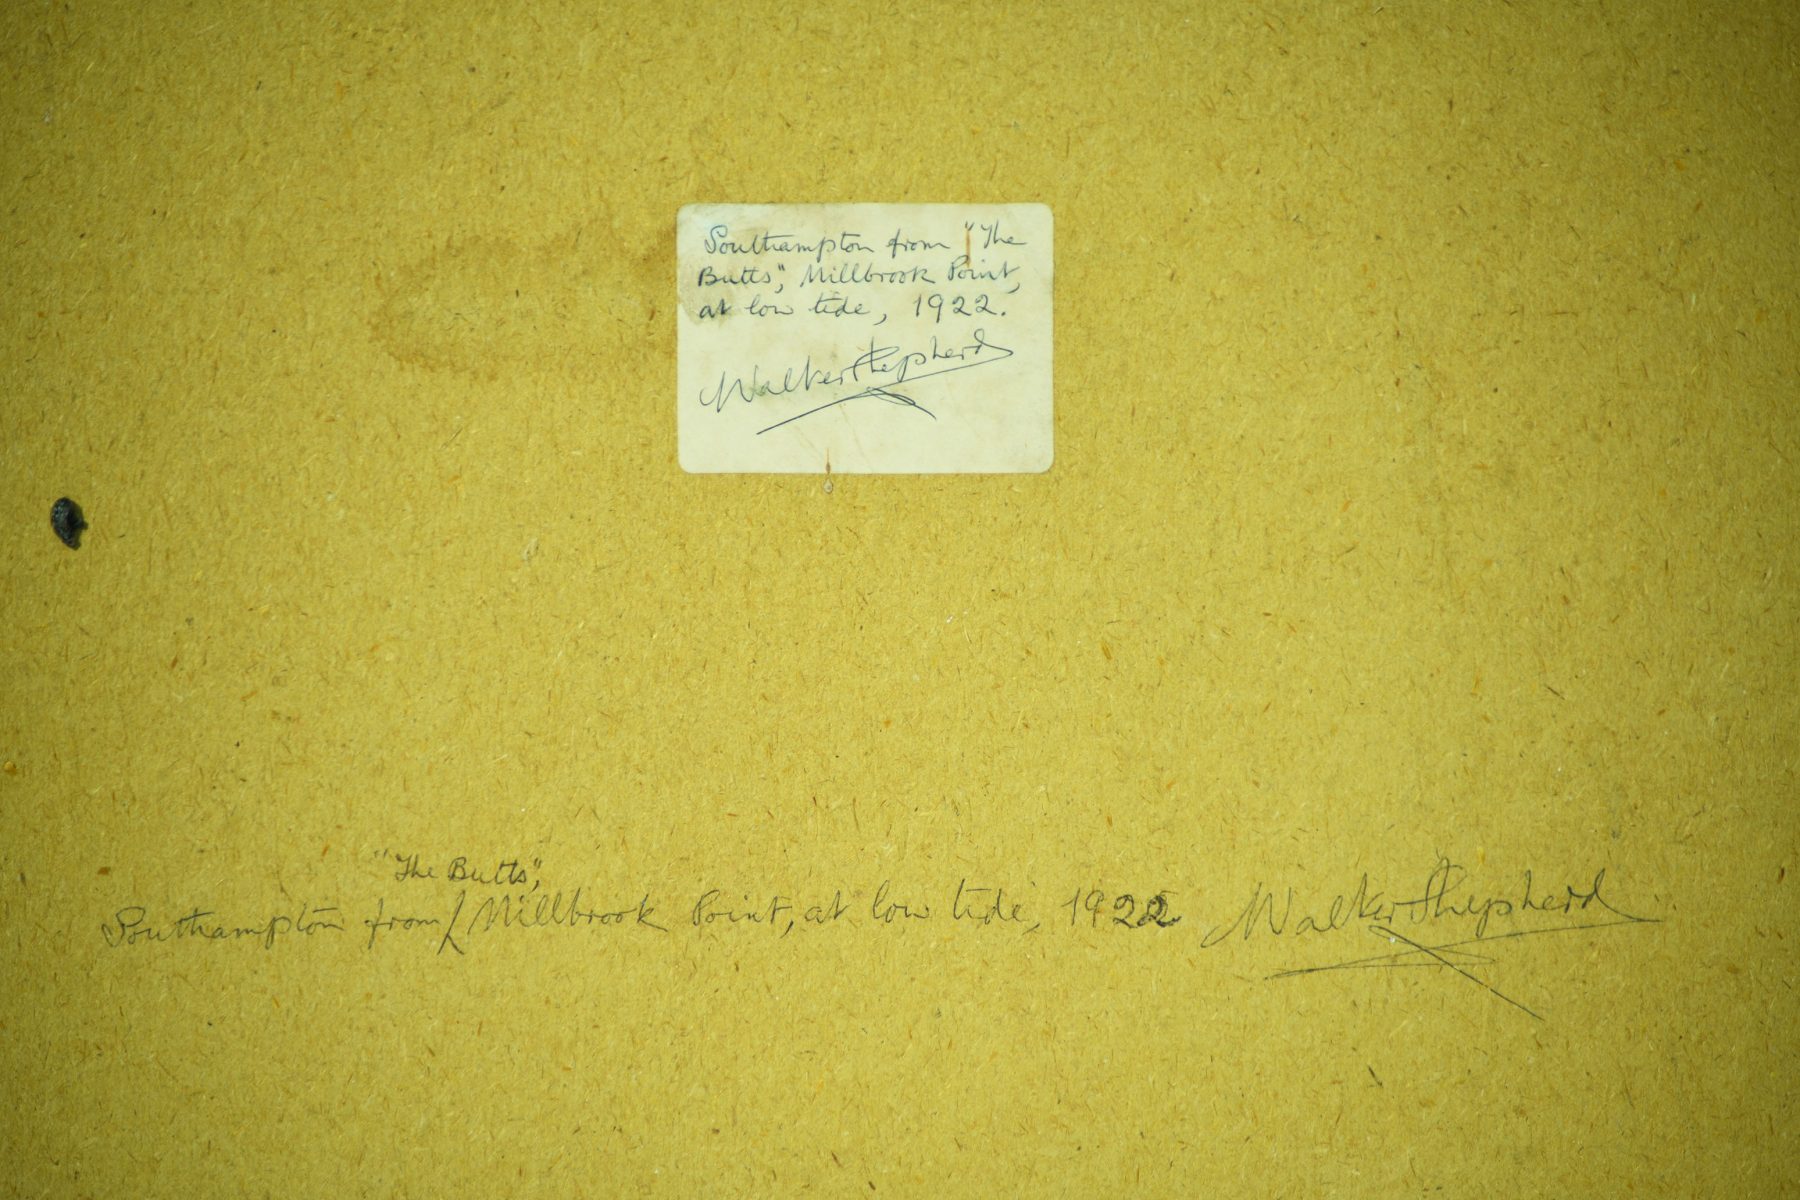 Southampton from "The
Butts", Millbrook Point,
at low tide, 1922.
Walker Shepherd
"The Butts",
Southampton from Millbrook Point, at low tide, 1922 Walker Shepherd